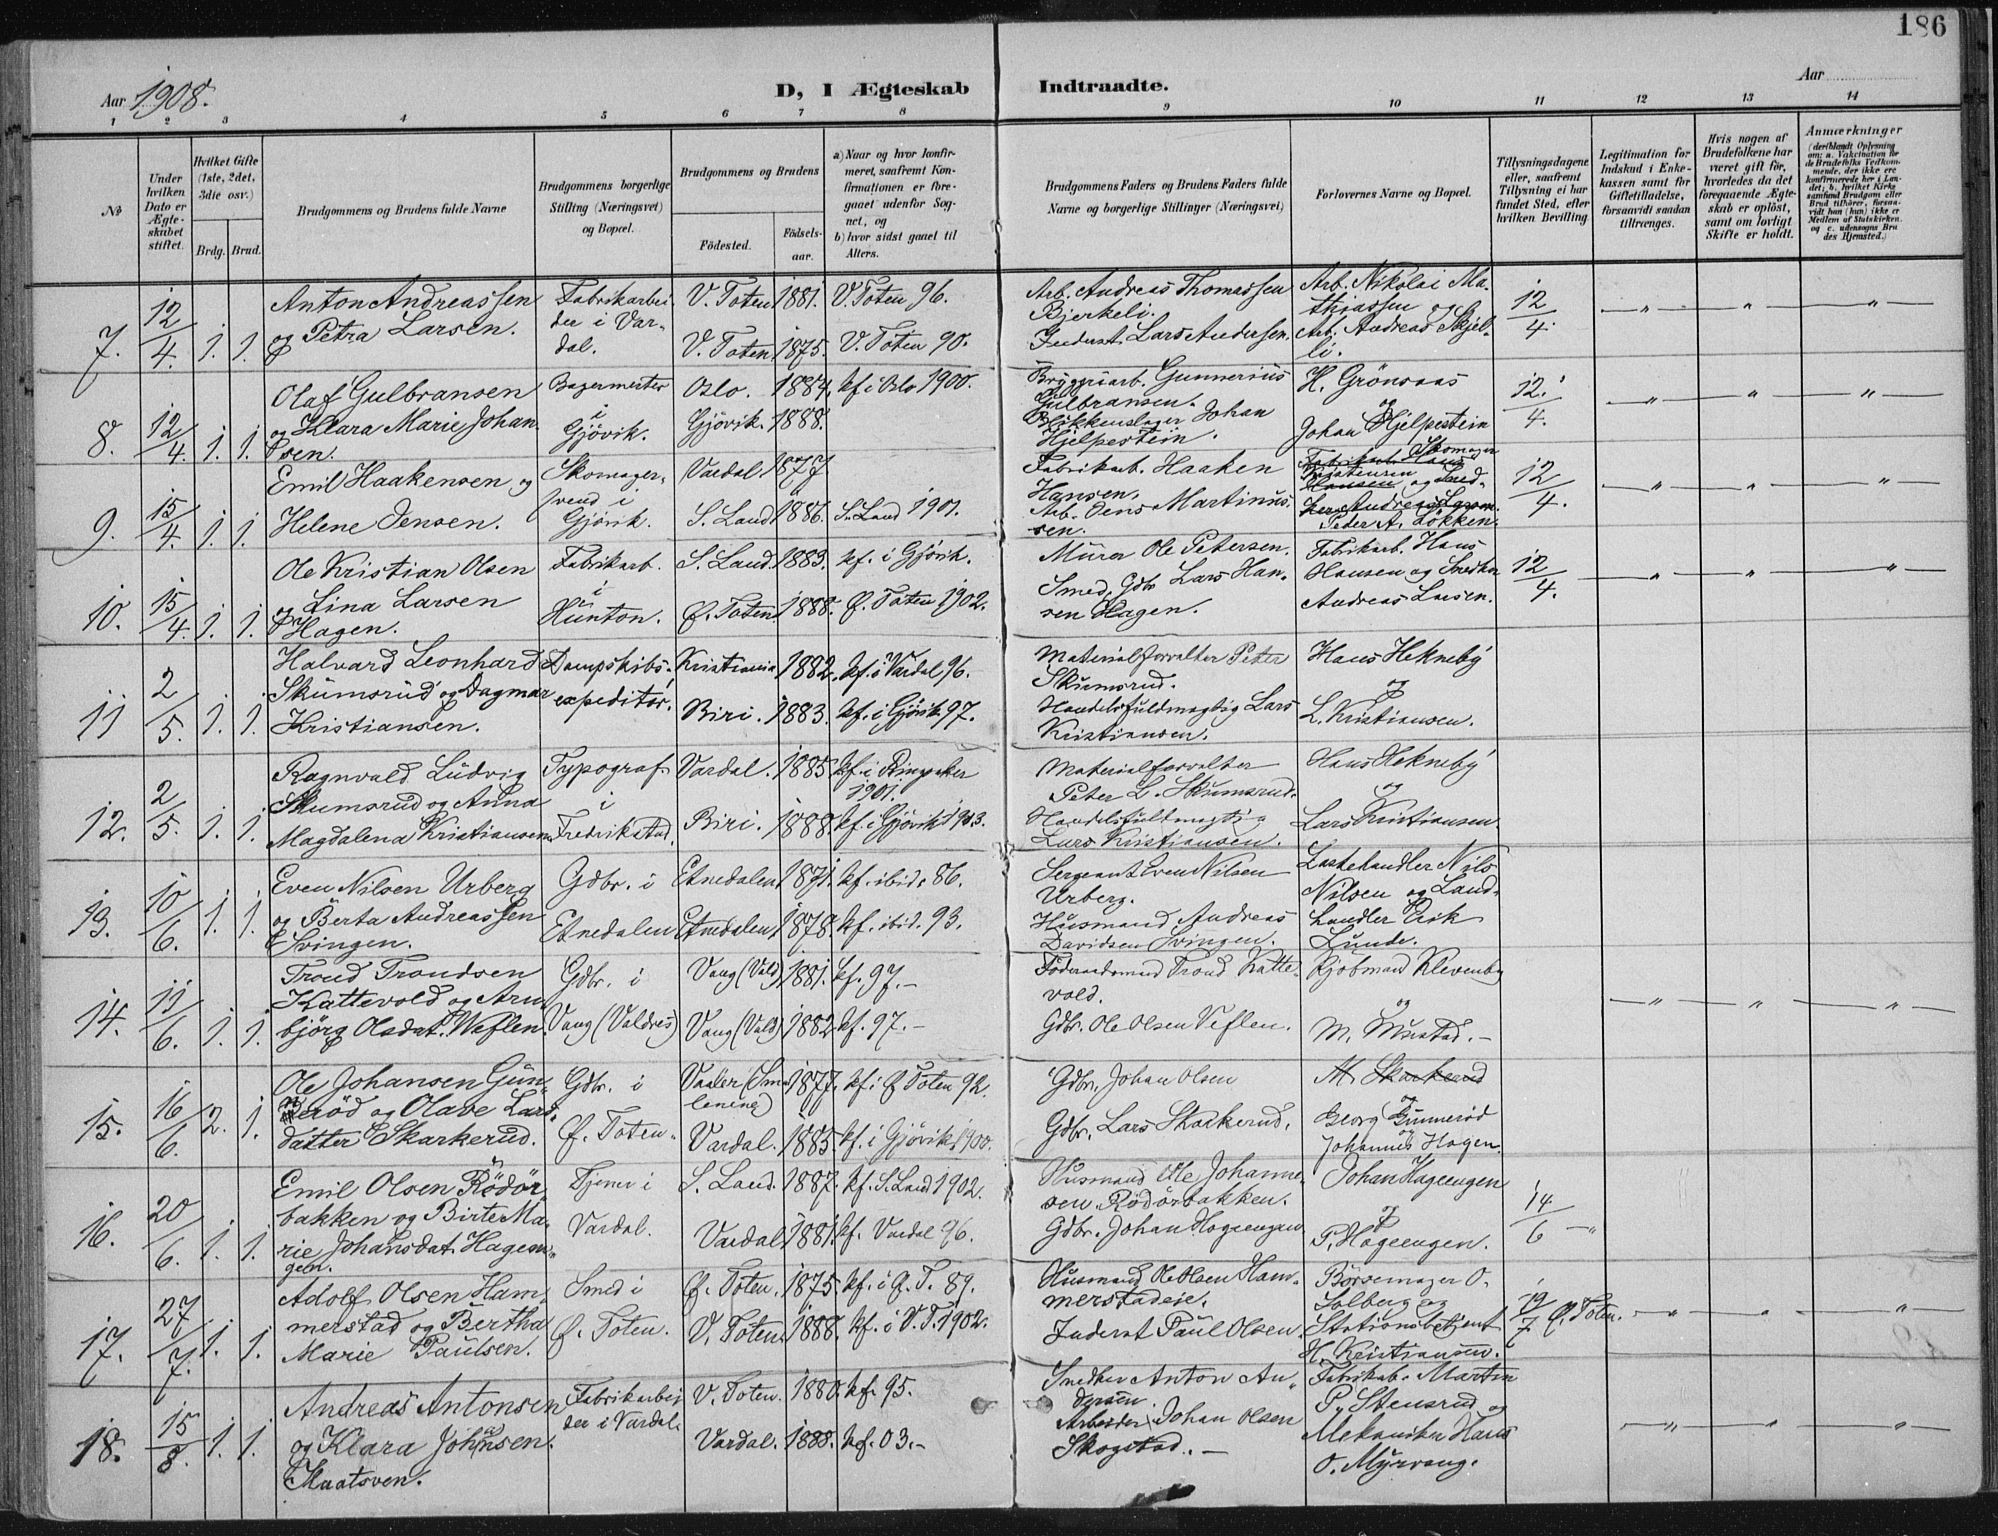 186
Aar 1908.
D, I Ægteskab Indtraadte.
Aar
1 2 3 4 5 6 7 8 9 10 11 12 13 14
No
Under hvilken Dato er Ægteskabet stiftet.
Hvilket Gifte (1ste, 2det, 3die osv.)
Brdg. Brud.
Brudgommens og Brudens fulde Navne
Brudgommens borgerlige Stilling (Næringsvei) og Bopæl.
Brudgommens og Brudens
Födested.
Födselsaar.
a) Naar og hvor konfirmeret, saafremt Konfirmationen er foregaaet udenfor Sognet, og
b) hvor sidst gaaet til Alters.
Brudgommens Faders og Brudens Faders fulde Navne og borgerlige Stillinger (Næringsvei)
Forlovernes Navne og Bopæl.
Tillysningsdagene eller, saafremt Tillysning ei har fundet Sted, efter hvilken Bevilling.
Legitimation for Indskud i Enkekassen samt for Giftetilladelse, forsaavidt saadan tiltrænges.
Hvis nogen af Brudefolkene har været gift för, hvorledes da det foregaaende Ægteskab er oplöst, samt om lovligt Skifte er holdt.
Anmærkninger
(deriblandt Oplysning om: a. Vakcination for de Brudefolks Vedkommende, der ikke ere konfirmerede her i Landet; b. hvilket Kirkesamfund Brudgom eller Brud tilhörer, forsaavidt han (hun) ikke er Medlem af Statskirken, og c. udensogns Brudes Hjemsted.)
7. 12/4. 1. 1.
Anton Andreassen
og Petra Larsen.
Fabrikarbei-
der i Var-
dal.
V. Toten 1881. V. Toten 96.
V. Toten 1875. V. Toten 90.
Arb. Andreas Thomassen
Bjerkeli.
Inderst Lars Andersen.
Arb. Nikolai Ma-
thiassen og
Arb. Andreas Skjel-
li.
12/4.
8. 12/4. 1. 1.
Olaf Gulbransen
og Klara Marie Johan-
sen.
Bagermester
i
Gjövik.
Oslo. 1884. kf. i Oslo 1900.
Gjövik. 1888.
Bryggeriarb. Gunnerius
Gulbransen.
Blikkenslager Johan
Hjelpestein.
H. Grönsaas
og
Johan Hjelpestein
12/4.
9. 15/4. 1. 1.
Emil Haakensen og
Helene Jensen.
Skomager-
svend i
Gjövik.
Vardal. 1877
S. Land 1886. S. Land 1901.
Fabrikarb. Haaken
Hansen.
Arb. Jens Martinus-
sen.
Skomager
Fabrikarb. Hans
Hansen og Sned-
ker Andreas Larsen.
Peder A. Lökken.
12/4.
10. 15/4. 1. 1.
Ole Kristian Olsen
og Lina Larsen
Hagen.
Fabrikarb.
i
Hunton.
S. Land. 1883. kf. i Gjövik.
Ö. Toten 1888. Ö. Toten 1902.
Murer Ole Petersen.
Smed, Gdbr. Lars Han-
sen Hagen.
Fabrikarb. Hans
Hansen og Snedker
Andreas Larsen.
12/4.
11 2/5. 1. 1.
Halvard Leonhard
Skumsrud og Dagmar
Kristiansen.
Dampskibs-
expeditör.
Kristiania 1882. kf. i Vardal 96.
Biri. 1883. kf. i Gjövik 97.
Materialforvalter Peter
Skumsrud.
Handelsfuldmægtig Lars
Kristiansen.
Hans Hekneby
og
L. Kristiansen.
12. 2/5. 1. 1.
Ragnvald Ludvig
Skumsrud og Anna
Magdalena Kristiansen
Typograf
i
Fredrikstad.
Vardal. 1885. kf. i Ringsaker
1901.
Biri. 1888. kf. i Gjövik 1903.
Materialforvalter
Peter L. Skumsrud.
Handelsfuldmægtig
Lars Kristiansen.
Hans Hekneby
og
Lars Kristiansen.
13. 10/6. 1. 1.
Even Nilsen Urberg
og Berta Andreassen
Svingen.
Gdbr. i
Etnedalen
Etnedalen 1871. kf. ibid. 86.
Etnedalen 1878. kf. ibid. 93.
Sergeant Even Nilsen
Urberg.
Husmand Andreas
Davidsen Svingen.
Nils
Nilsen og Land-
handler Erik
Lunde.
14. 11/6. 1. 1.
Trond Trondsen
Kattevold og Arn-
björg Olsdat. Weflen.
Gdbr. i
Vang (Valdres)
Vang (Vald) 1881. kf. 97.-
Vang (Vald) 1882 kf. 97.-
Föderaadsmand Trond Katte-
vold.
Gdbr. Ole Olsen Veflen.
Kjöbmand Klevenby
og
M. Mustad.-
15. 16/6. 2. 1.
Ole Johansen Gun-
neröd og Olave Lars-
datter Skarkerud.
Gdbr. i
Ö. Toten.
Vaaler (Smaa-
lenene) 1877. kf. i Ö. Toten 92.
Vardal. 1885. kf. i Gjövik 1900.
Gdbr. Johan Olsen
Gdbr. Lars Skarkerud.
M. Skarkerud
og
Georg Gunneröd
og
Johannes Hagen.
16. 20/6. 1. 1.
Emil Olsen Rödör-
bakken og Birte Ma-
rie Johansdat. Hageen-
gen.
Tjener i
Vardal.
S. Land. 1887. kf. S. Land 1902.
Vardal 1881. kf. Vardal 96.
Husmand Ole Johanne-
sen Rödörbakken.
Gdbr. Johan Hageengen
Johan Hageengen
og
P. Hageengen.
14/6
17. 27/7. 1. 1.
Adolf Olsen Ham-
merstad og Bertha
Marie Paulsen.
Smed i
Ö. Toten.
Ö. Toten. 1875. kf. i Ö. T. 89.
V. Toten. 1888. kf. i V. T. 1902.
Husmand Ole Olsen Ham-
merstadeie.
Inderst Paul Olsen.
Börsemager O.
Solberg og
Stationsbetjent
H. Kristiansen.
19/7 Ö. Toten.
18. 15/8. 1. 1.
Andreas Antonsen
og Klara Johansen
Skaatsven.
Fabrikarbei-
der i Vardal.
V. Toten. 1880. kf. 95.
Vardal. 1888. kf. 03.-
Snedker Anton An-
dersen.
Arbeider Johan Olsen
Skogstad.-
Fabrikarb. Martin
P. Stensrud og
Mekaniker Hans
O. Myrvang.